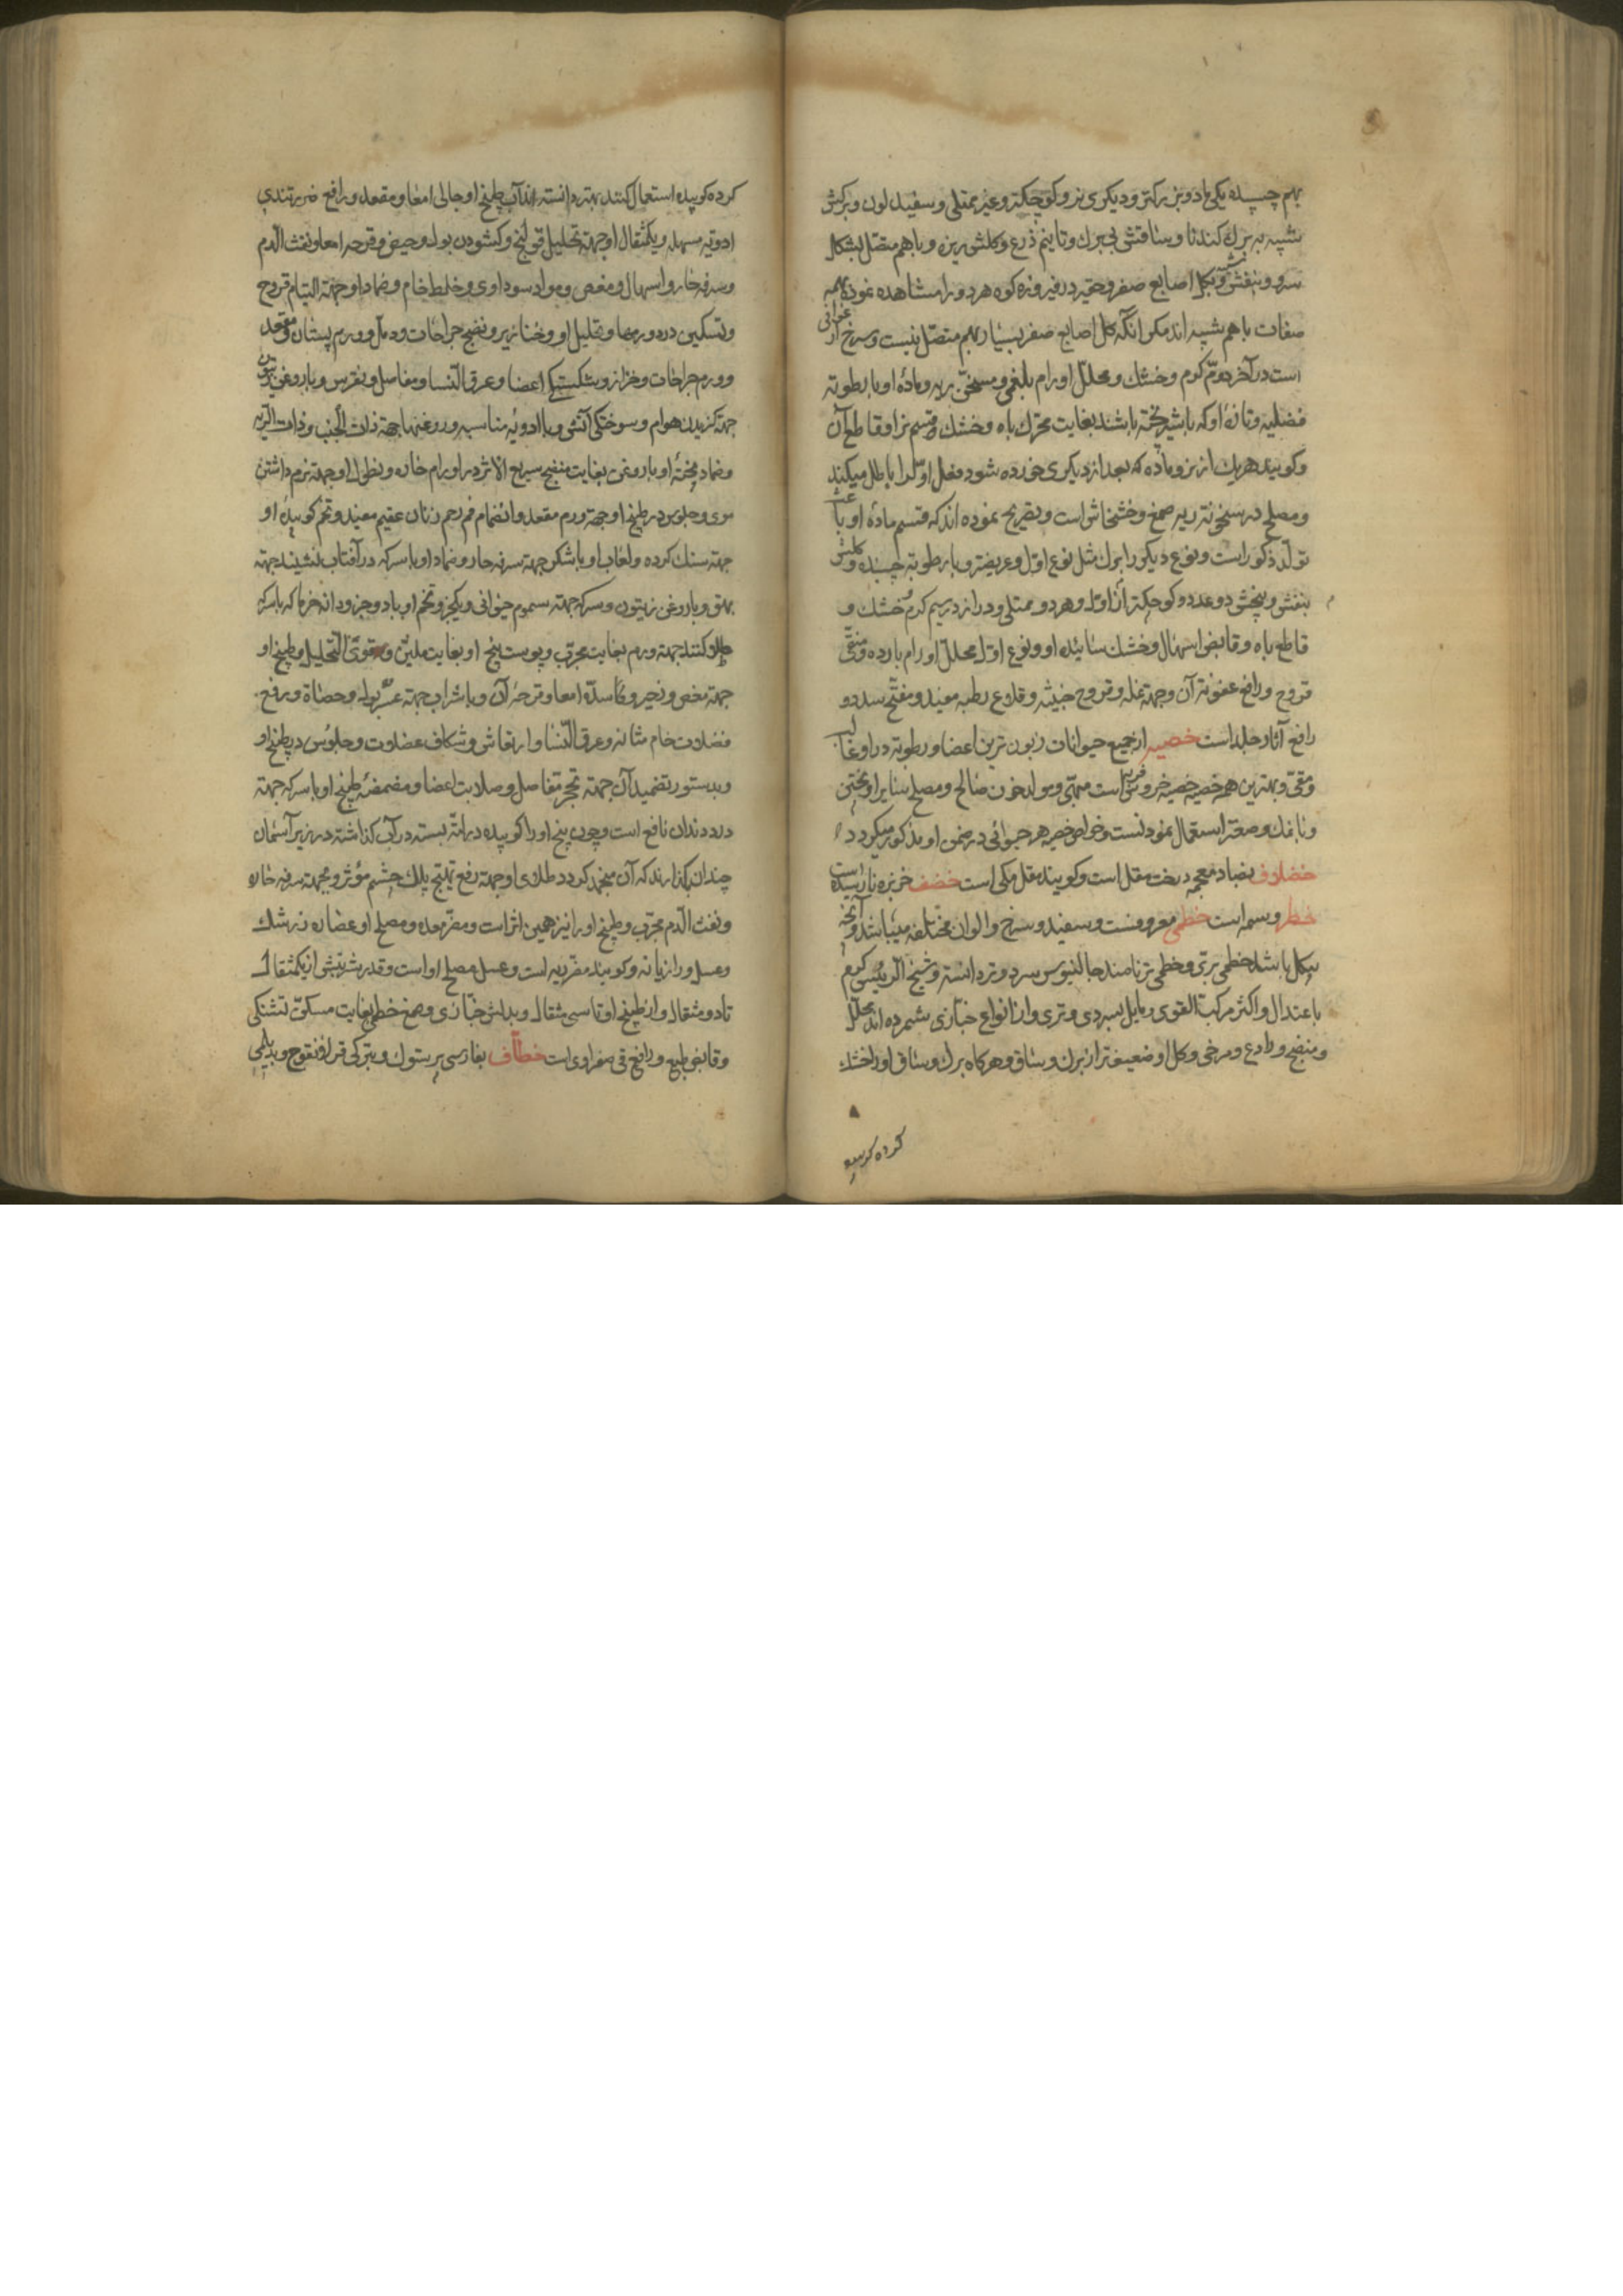 بهم چسپیده یکی ماده و بزرکتر و دیکری نر و کوچکتر و غیر ممتلی و سفید لون و برکش
شبیه به برک کندنا و ساقش بی برک و تا نیم ذرع و کلش ریزه و با هم متصل بشکل
سرو و بنفش و بکل اصابع صفر و حقیر در فیروزه کوه هر دو را مشاهده نموده همه
صفات با هم شبیه اند مکر آنکه کل اصابع صفر بسیار بهم متصل نیست و سرخ ارغوانی
است در آخر دوم کرم و خشک و محلل اورام بلغمی و مسخن ریه و ماده او با رطوبه
فضلیه و تازه او که با شیر پخته باشند بغایت محرک باه و خشک و قسم نر او قاطع آن
و کویند هر یک از نر و ماده که بعد از دیکری خورده شود فعل اول را باطل میکند
و مصلح در سخونة ریه صمغ و خشخاش است و تصریح نموده اند که قسم ماده او باعث
تولد ذکور است و نوع دیکر را برک مثل نوع اول و عریضتر و با رطوبة چسبنده و کلش
بنفش و بیخش دو عدد و کوچکتر از اول و هر دو ممتلی و دراز در سیم کرم و خشک و
قاطع باه و قابض اسهال و خشک سائیده او و نوع اول محلل اورام بارده و منقی
قروح و رافع عفونة آن و جهة نمله و قروح خبیثه و قلاع رطبه مفید و مفتح سدد و
رافع آثار جلد است خصیه از جمیع حیوانات زبون ترین اعضا و رطوبة در او غالب
و مقوی و بهترین همه خصیه خروس فربه است مبهی و مولد خون صالح و مصلح سایر او پختن
و با نمک و صعتر استعمال نمودنست و خواص خصیه هر حیوانی در ضمن او مذکور میکردد
خضلاف بضاد معجمه درخت مقل است و کویند مقل مکی است خضف خربزه نارسیده است
خطر وسمه است خطمی معروفست و سفید و سرخ و الوان مختلفه میباشد و آنچه
بیکل باشد خطمی بری و خطمی نر نامند جالینوس سرد و تر دانسته و شیخ الرئیس کرم
باعتدال و اکثر مرکب القوی و مایل بسردی و تری و از انواع خبازی شمرده اند محلل
و منضج و رادع و مرخی و کل او ضعیفتر از برک و ساق و هرکاه برک و ساق او را خشک
کرده کوبیده
کرده کوبیده استعمال کنند بهتر دانسته اند آب طبیخ او جالی امعا و مقعد و رافع ضرر تندی
ادویه مسهله و یکمثقال او جهة تحلیل قولنج و کشودن بول و حیض و قرحه امعا و نفث الدم
و سرفه حار و اسهال و مغص و مواد سوداوی و خلط خام و ضماد او جهة التیام قروح
و تسکین درد ورمها و تحلیل او و خنازیر و نضج جراحات و دمل و ورم پستان و مقعد
و ورم جراحات و خزاز و شکستکی اعضا و عرق النسا و مفاصل و نقرس و با روغن زیتون
جهة کزیدن هوام و سوختکی آتش و با ادویه مناسبه و روغنها جهة ذات الجنب و ذات الریه
و ضماد پخته او با روغن بغایت منضج سریع الاثر در اورام حاره و نطول او جهة نرم داشتن
موی و جلوس در طبیخ او جهة ورم مقعد و انضمام فم رحم زنان عقیم مفید و تخم کوبیده او
جهة سنک کرده و لعاب او با شکر جهة سرفه حار و ضماد او با سرکه در آفتاب نشینند جهة
بهق و با روغن زیتون و سرکه جهة سموم حیوانی و یکجزو تخم او با دو جزو دانه خرما که با سرکه
طلا کنند جهة ورم بغایت مجرب و پوست بیخ او بغایت ملین و قوی التحلیل و طبیخ او
جهة مغص و زحیر و کاسده امعا و قرحه آن و با شراب جهة عسر بول و حصاة و رفع
فضلات خام مثانه و عرق النسا و ارتعاش و شکاف عضلات و جلوس در طبیخ او
و بدستور تضمید آن جهة تحجر مفاصل و صلابت اعضا و مضمضه طبیخ او با سرکه جهة
درد دندان نافع است و چون بیخ او را کوبیده در لته بسته در آب کذاشته در زیر آسمان
چندان بکذارند که آن منجمد کردد طلای او جهة رفع تهیج پلک چشم مؤثر و جهة سرفه حاره
و نفث الدم مجرب و طبیخ او را نیز همین اثر است و مضر معده و مصلح او عصاره زرشک
و عسل و رازیانه و کویند مضر ریه است و عسل مصلح او است و قدر شربتش از یکمثقال
تا دو مثقال و از طبیخ او تا سی مثقال و بدلش خبازی و صمغ خطمی بغایت مسکن تشنکی
و قابض طبع و رافع قی صفراوی است خطاف بفارسی پرستوک و بترکی قرلنقوج و بدیلمی